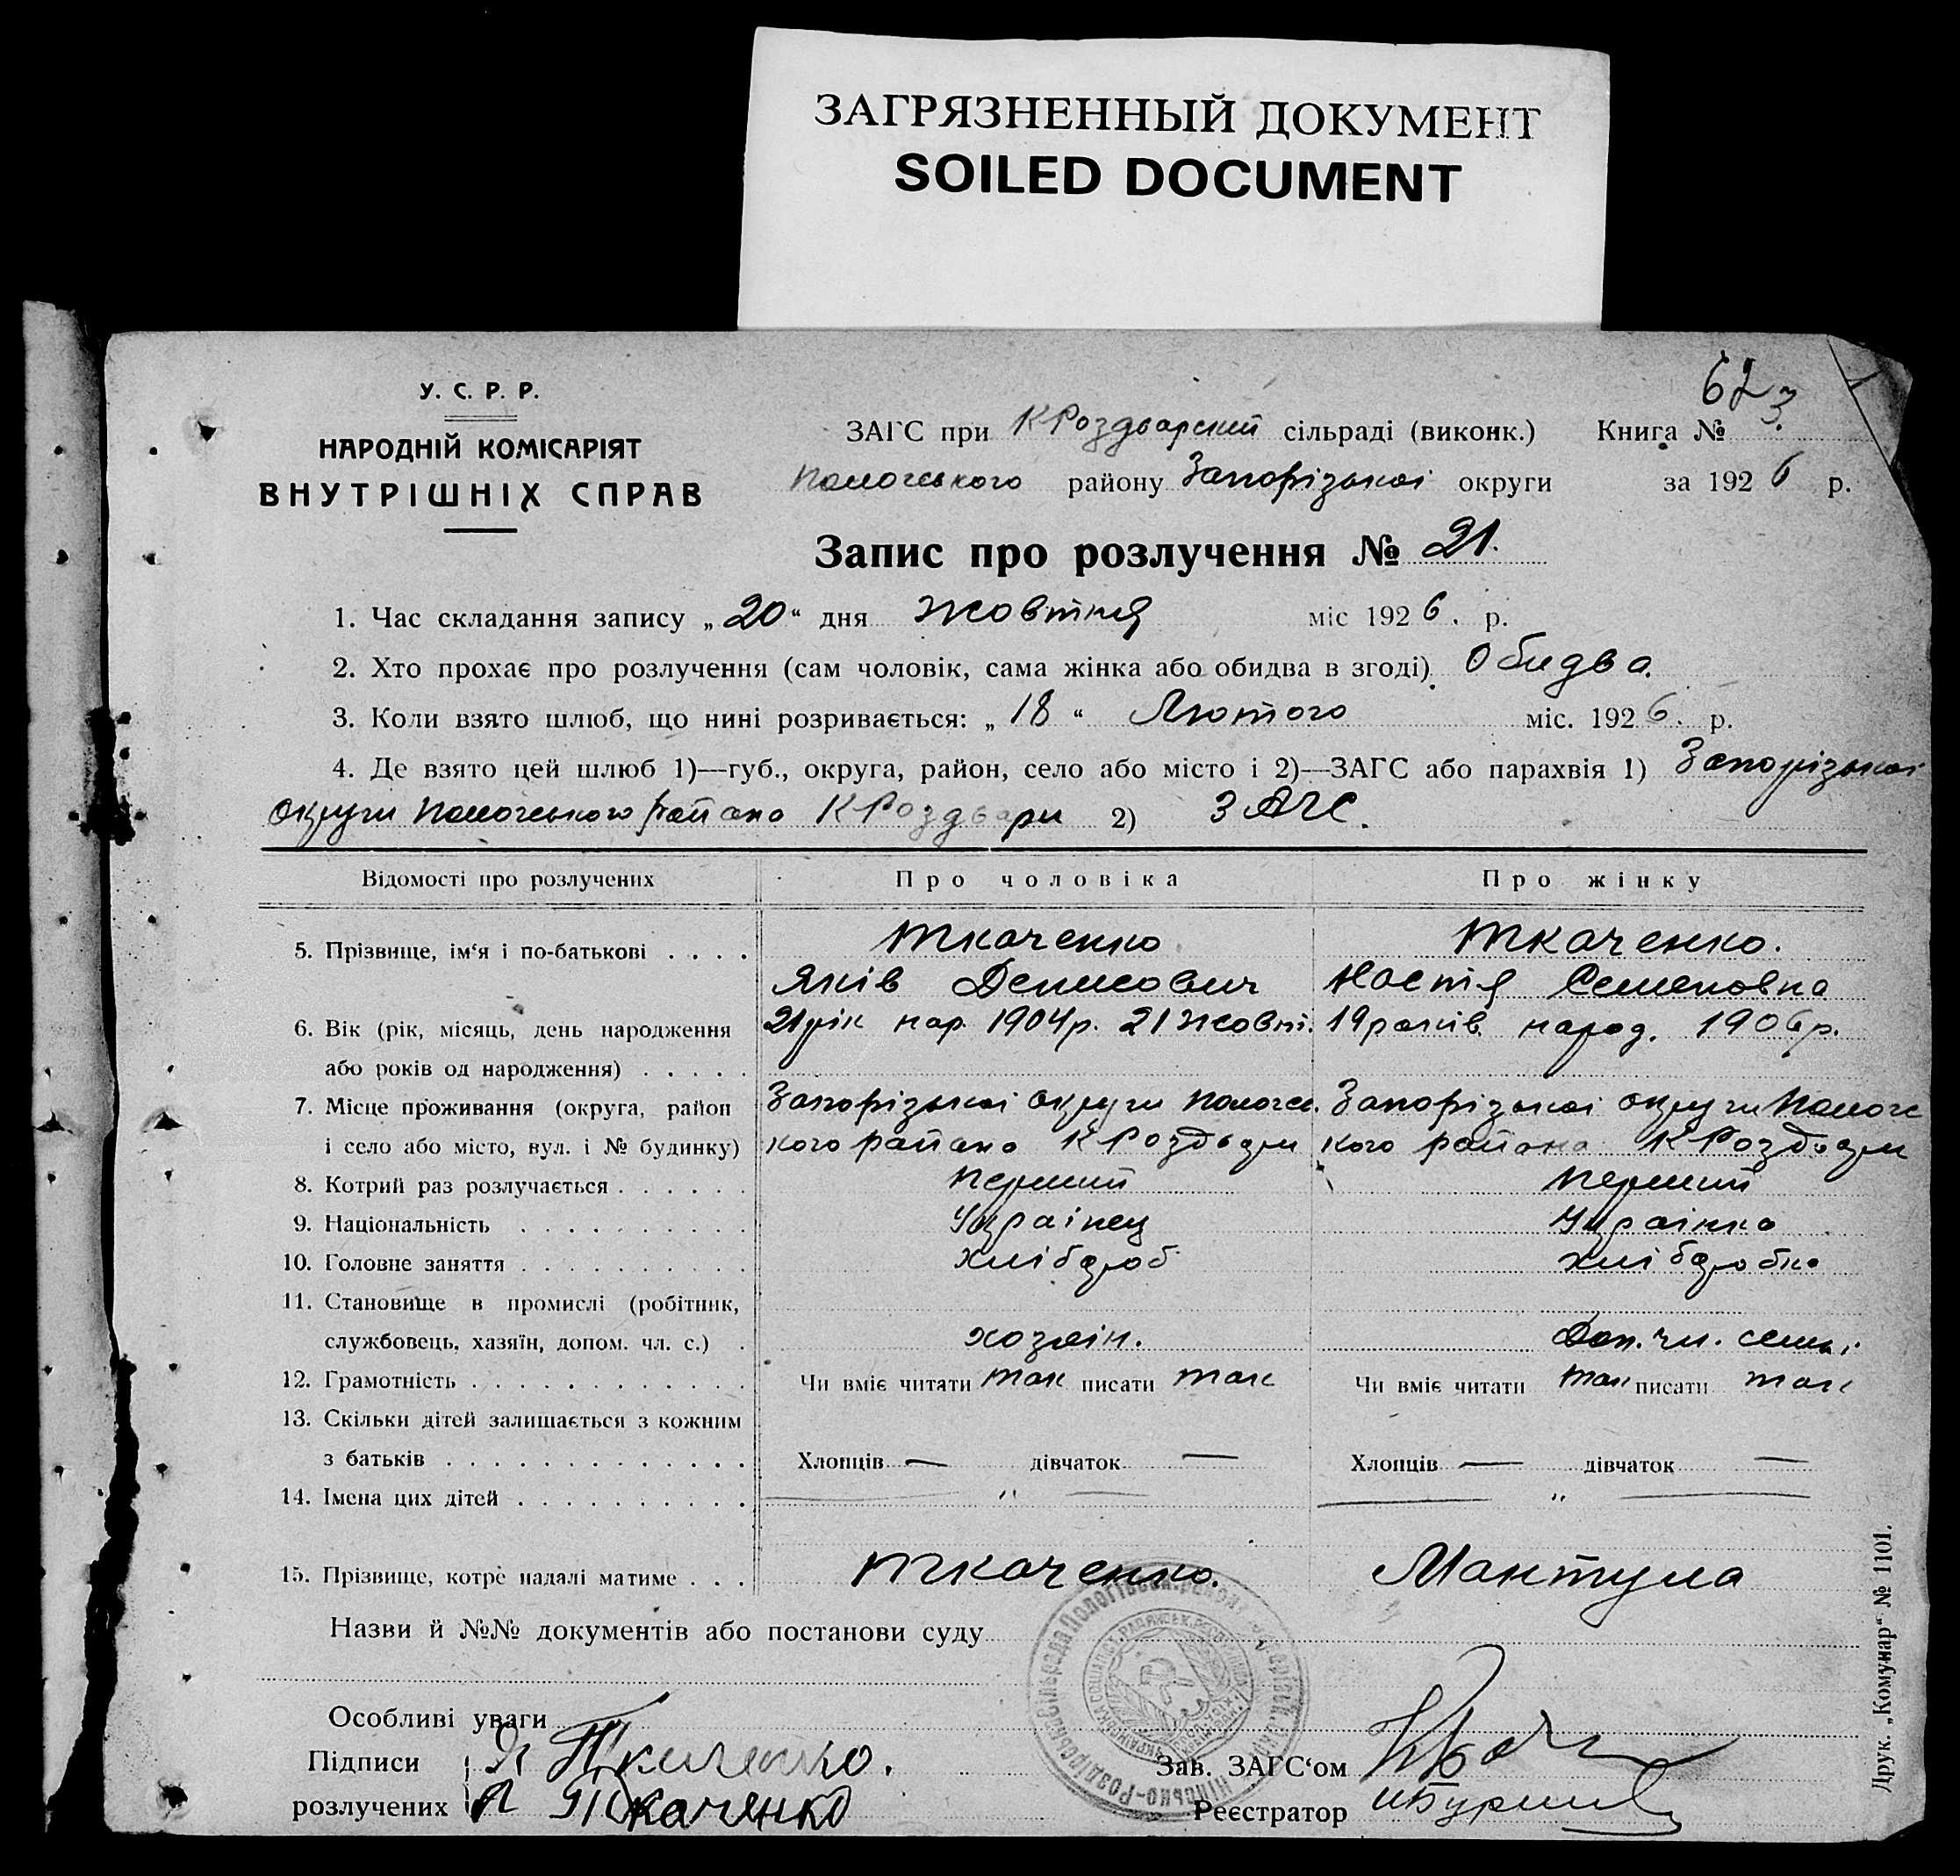 ЗАГРЯЗНЕННЫЙ ДОКУМЕНТ
SOILED DOCUMENT
У. С. Р. Р.
НАРОДНІЙ КОМІСАРІЯТ
ВНУТРІШНІХ СПРАВ
62
ЗАГС при КРоздорський сільраді (виконк.) Книга № 3.
Пологського району Запорізької округи за 1926 р.
Запис про розлучення № 21.
1. Час складання запису „20“ дня Жовтня міс 1926. р.
2. Хто прохає про розлучення (сам чоловік, сама жінка або обидва в згоді) Обидва.
3. Коли взято шлюб, що нині розривається: „18“ Лютого міс. 1926. р.
4. Де взято цей шлюб 1)—губ., округа, район, село або місто і 2)—ЗАГС або парахвія 1) Запорізькоі
округи Пологського району КРоздори 2) ЗАГС.
Відомості про розлучених Про чоловіка Про жінку
5. Прізвище, ім‘я і по-батькові . . . . Ткаченко Ткаченко.
Яків Денисович Настя Семеновна
6. Вік (рік, місяць, день народження 21 рік нар. 1904р. 21 жовт. 19 років народ. 1906р.
або років од народження) . . . . .
7. Місце проживання (округа, район Запорізькоі округи Пологс. Запорізькоі округи Пологс
і село або місто, вул. і № будинку) кого района КРоздори кого района КРоздори
8. Котрий раз розлучається . . . . . . Перший Перший
9. Національність . . . . . . . . . . Украінец Украінка
10. Головне заняття . . . . . . . . . . хлібороб хліборобка
11. Становище в промислі (робітник,
службовець, хазяїн, допом. чл. с.) . хозяін. Доп. чл. семьі
12. Грамотність . . . . . . . . . . . . Чи вміє читати так писати так Чи вміє читати так писати так
13. Скільки дітей залишається з кожним
з батьків . . . . . . . . . . . . . Хлопців — дівчаток — Хлопців — дівчаток —
14. Імена цих дітей . . . . . . . . . . — „ — — „ —
15. Прізвище, котре надалі матиме . . . Ткаченко. Мантула
Назви й №№ документів або постанови суду
Особливі уваги
Підписи Я Ткаченко. Зав. ЗАГС‘ом
розлучених Н Ткаченко Реєстратор
Друк. „Комунар“ № 1101.